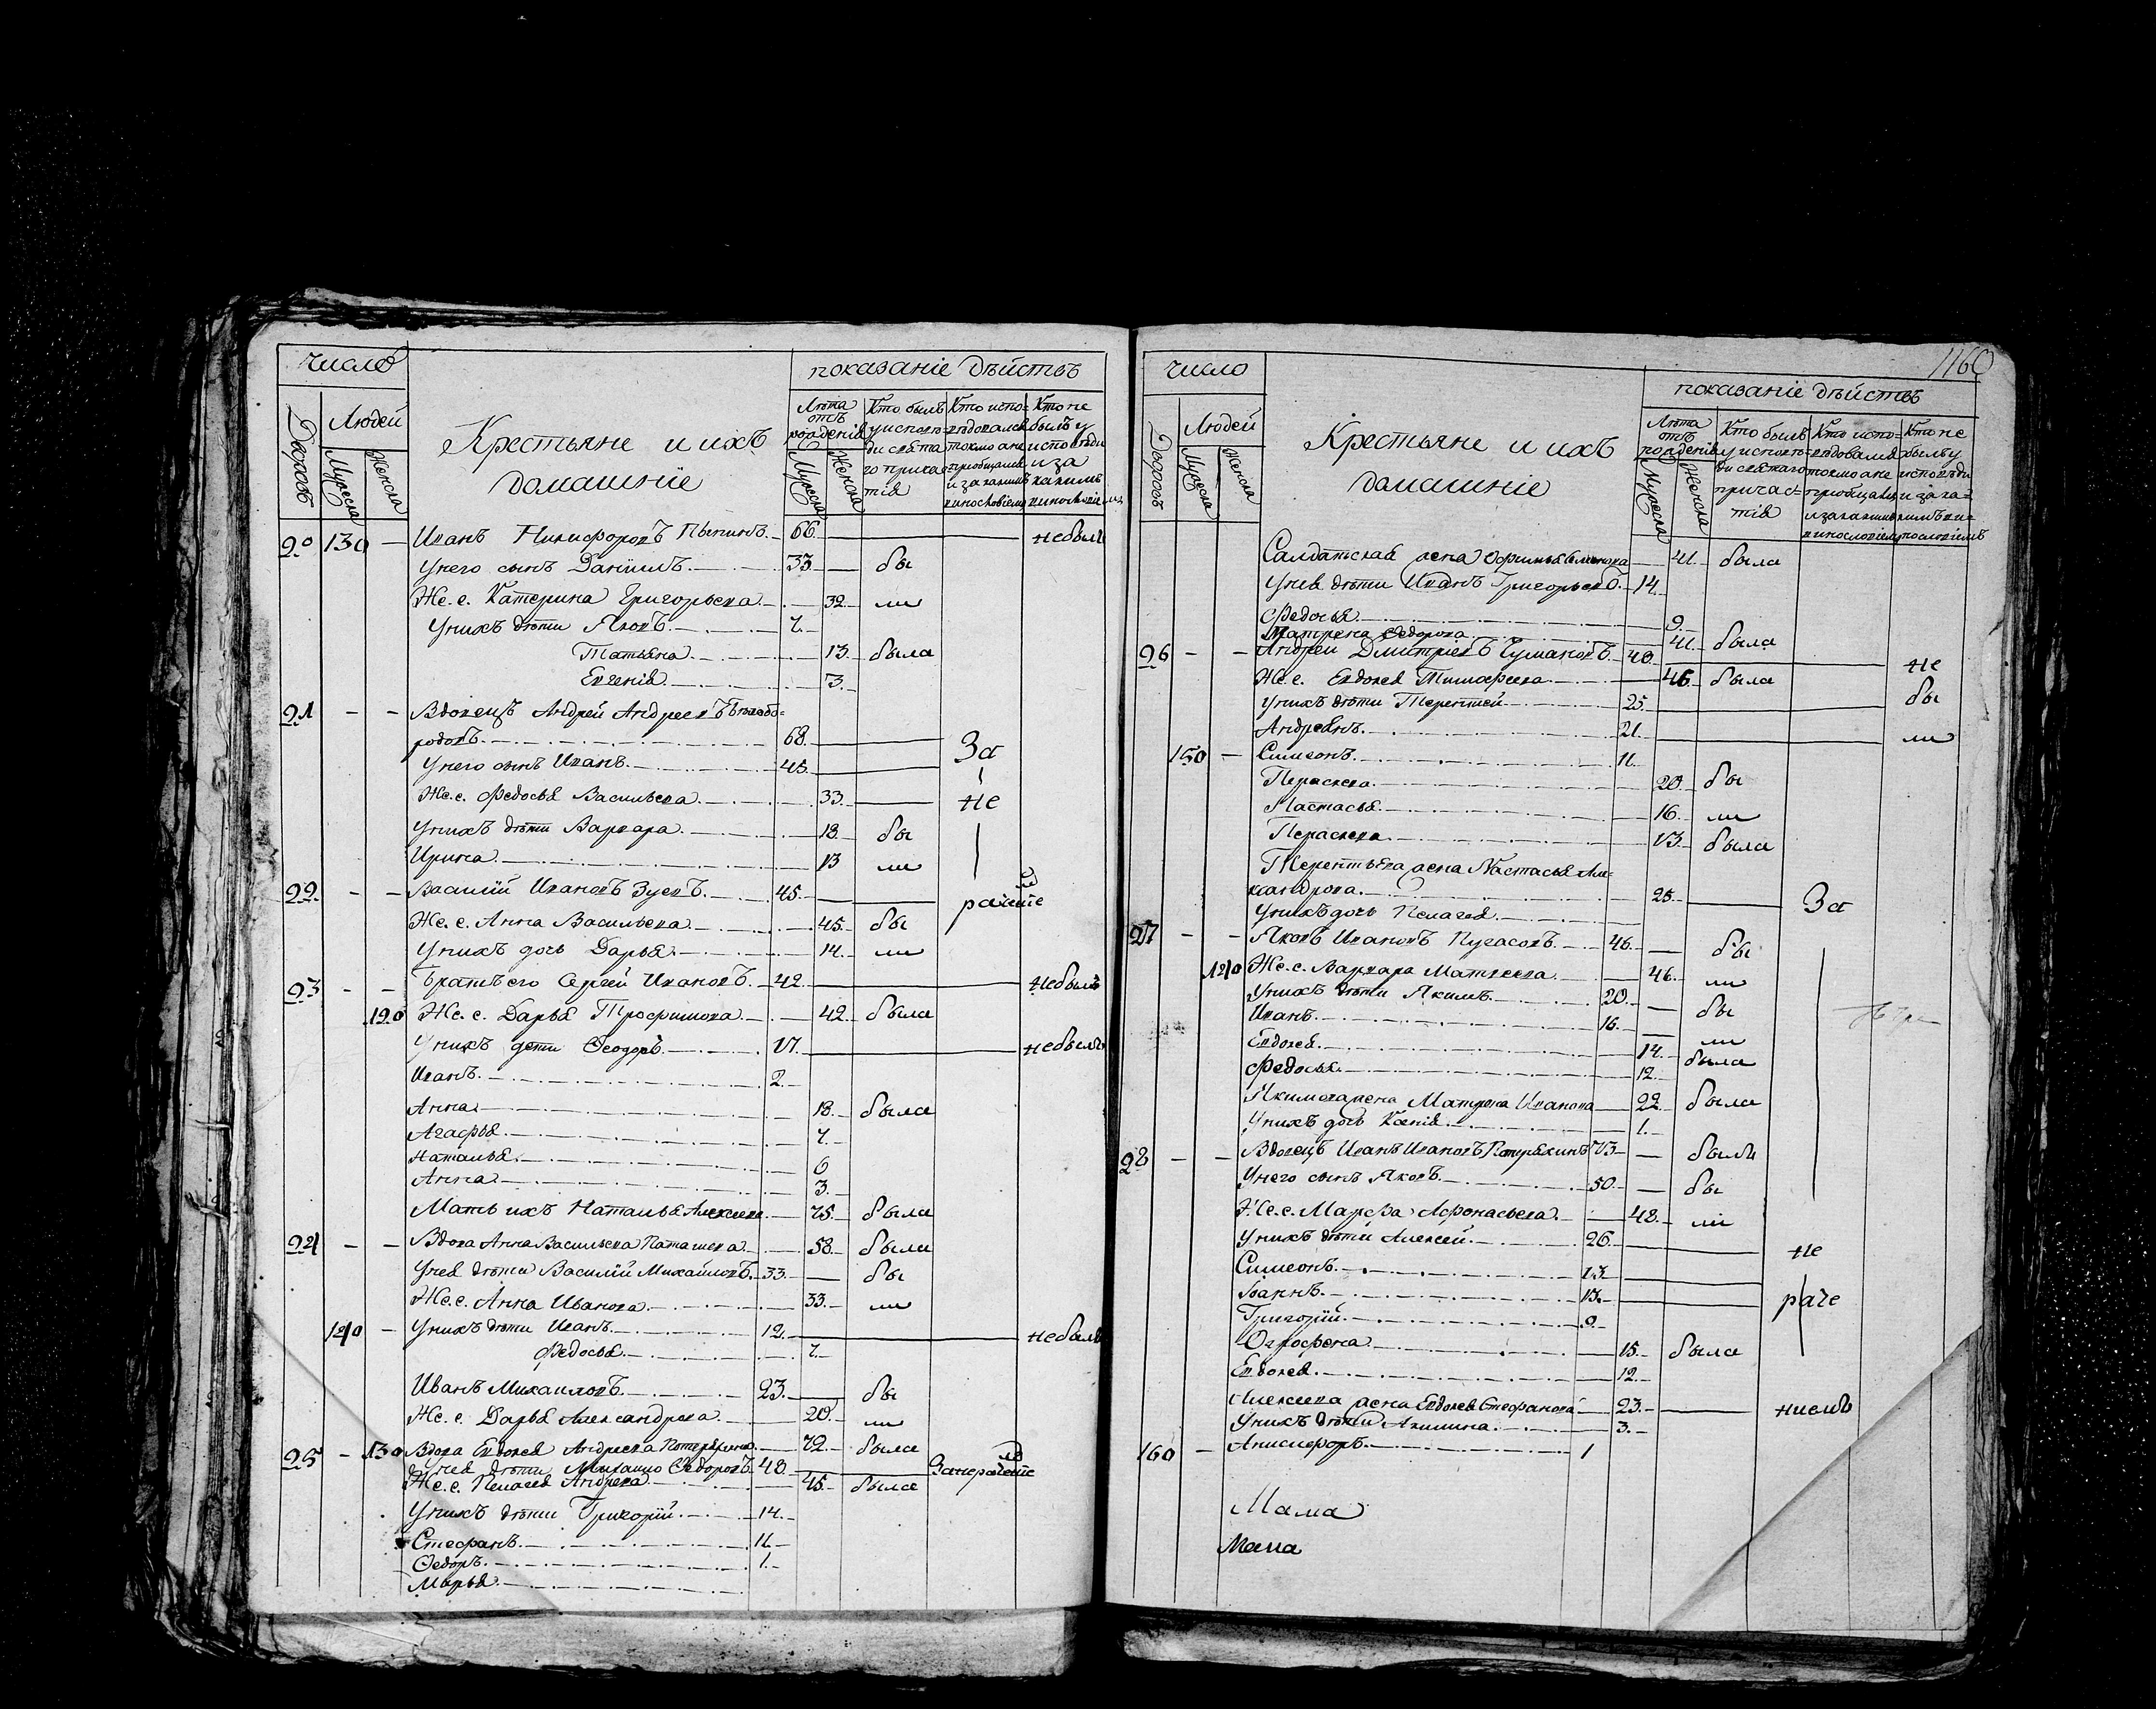 число
показанiе дѣйствъ
Дворовъ
Людей
Мужеска
Женска
Крестьяне и ихъ
домашнiе
Лѣта
отъ
рожденiя
Мужеска
Женска
Кто былъ
у исповѣ-
ди свята
го прича
тiя
Кто испо-
вѣдовался
токмо а не
прiобщался
и за какимъ
винословiемъ
Кто не
былъ у
исповѣди
и за
какимъ
винословiемъ
20 130 — Иванъ Никифоровъ Пыпинъ 66 небылъ
Унего сынъ Данiилъ 33 бы
Же. е. Катерина Григорьева 32 ли
Унихъ дѣти Яковъ 7
Татьяна 13 была
Евгенiя 3
21 - - Вдовецъ Андрей Андреевъ Бѣлобо-
родовъ 68 За
Унего сынъ Иванъ 45
Же. е. Федосья Васильева 33 не
Унихъ дѣти Варвара 18 бы
Ирина 13 ли
22 - - Василiй Ивановъ Зуевъ 45 раченiе
Же. е. Анна Васильева 45 бы
Унихъ дочь Дарья 14 ли
23 - - Братъ его Сергей Ивановъ 42 Небылъ
120 Же. е. Дарья Трофимова 42 была
Унихъ дети Феодоръ 17 небылъ
Иванъ 2
Анна 18 была
Агафья 7
Наталья 6
Анна 3
Мать ихъ Наталья Алексеева 75 была
24 - - Вдова Анна Васильева 58 была
Унея дѣти Василiй Михайловъ 33 бы
Же. е. Анна Иванова 33 ли
140 — Унихъ дѣти Иванъ 12 небылъ
Федосья 7
Иванъ Михаиловъ 23 бы
Же. е. Дарья Александрова 20 ли
25 - 130 Вдова Евдокея Андреева 72 была
Унея дѣти Михаило Федоровъ 48 Занераченiе
Же. е. Пелагея Андреева 45 была
Унихъ дѣти Григорiй 14
Стефанъ 11
Федоръ 1
Марья
1160
число
показанiе дѣйствъ
Дворовъ
Людей
Мужеска
Женска
Крестьяне и ихъ
домашнiе
Лѣта
отъ
рожденiя
Мужеска
Женска
Кто былъ
у исповѣ-
ди святаго
причас-
тiя
Кто испо-
вѣдовался
токмо а не
прiобщался
и за какимъ
винословiемъ
Кто не
былъ у
исповѣди
и за ка-
кимъ ви-
нословiемъ
Салдатская жена Офимья Семенова 41 была
Унея дѣти Иванъ Григорьевъ 14
Федосья 9
Матрена Федорова 41 была
26 - - Андрей Дмитрiевъ Чумаковъ 48 не
Же. е. Евдокея Тимофеева 46 была
Унихъ дѣти Терентей 25 бы
Андреянъ 21 ли
150 — Симеонъ 11
Парасковa 20 бы
Настасья 16 ли
Параскева 13 была
Терентьева жена Настасья Але-
ксандрова 25 За
Унихъ дочь Пелагея
27 - - Яковъ Ивановъ Пугасовъ 46 бы
140 Же. е. Варвара Матвеева 46 ли
Унихъ дѣти Якимъ 20 бы
Иванъ 16 ли
Евдокея 14 была
Федосья 12
Якимова жена Матрена Иванова 22 была
Унихъ дочь Ксенiя 1
28 - - Вдовецъ Иванъ Ивановъ 73 былъ
Унего сынъ Яковъ 50 бы
Же. е. Марфа Афонасьева 48 ли
Унихъ дѣти Алексей 26 не
Симеонъ 23
Iваннъ 13 раче
Григорiй 9
Огрофена 15 была
Евдокея 12
Алексеева жена Евдокея Стефанова 23 нiемъ
Унихъ дѣти Акилина 3
160 — Анисифоръ 1
Мама
Мама